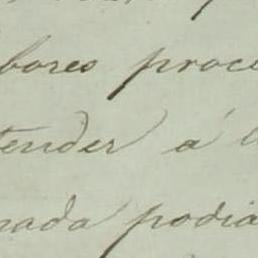 bores proce
tender á l
nada podia